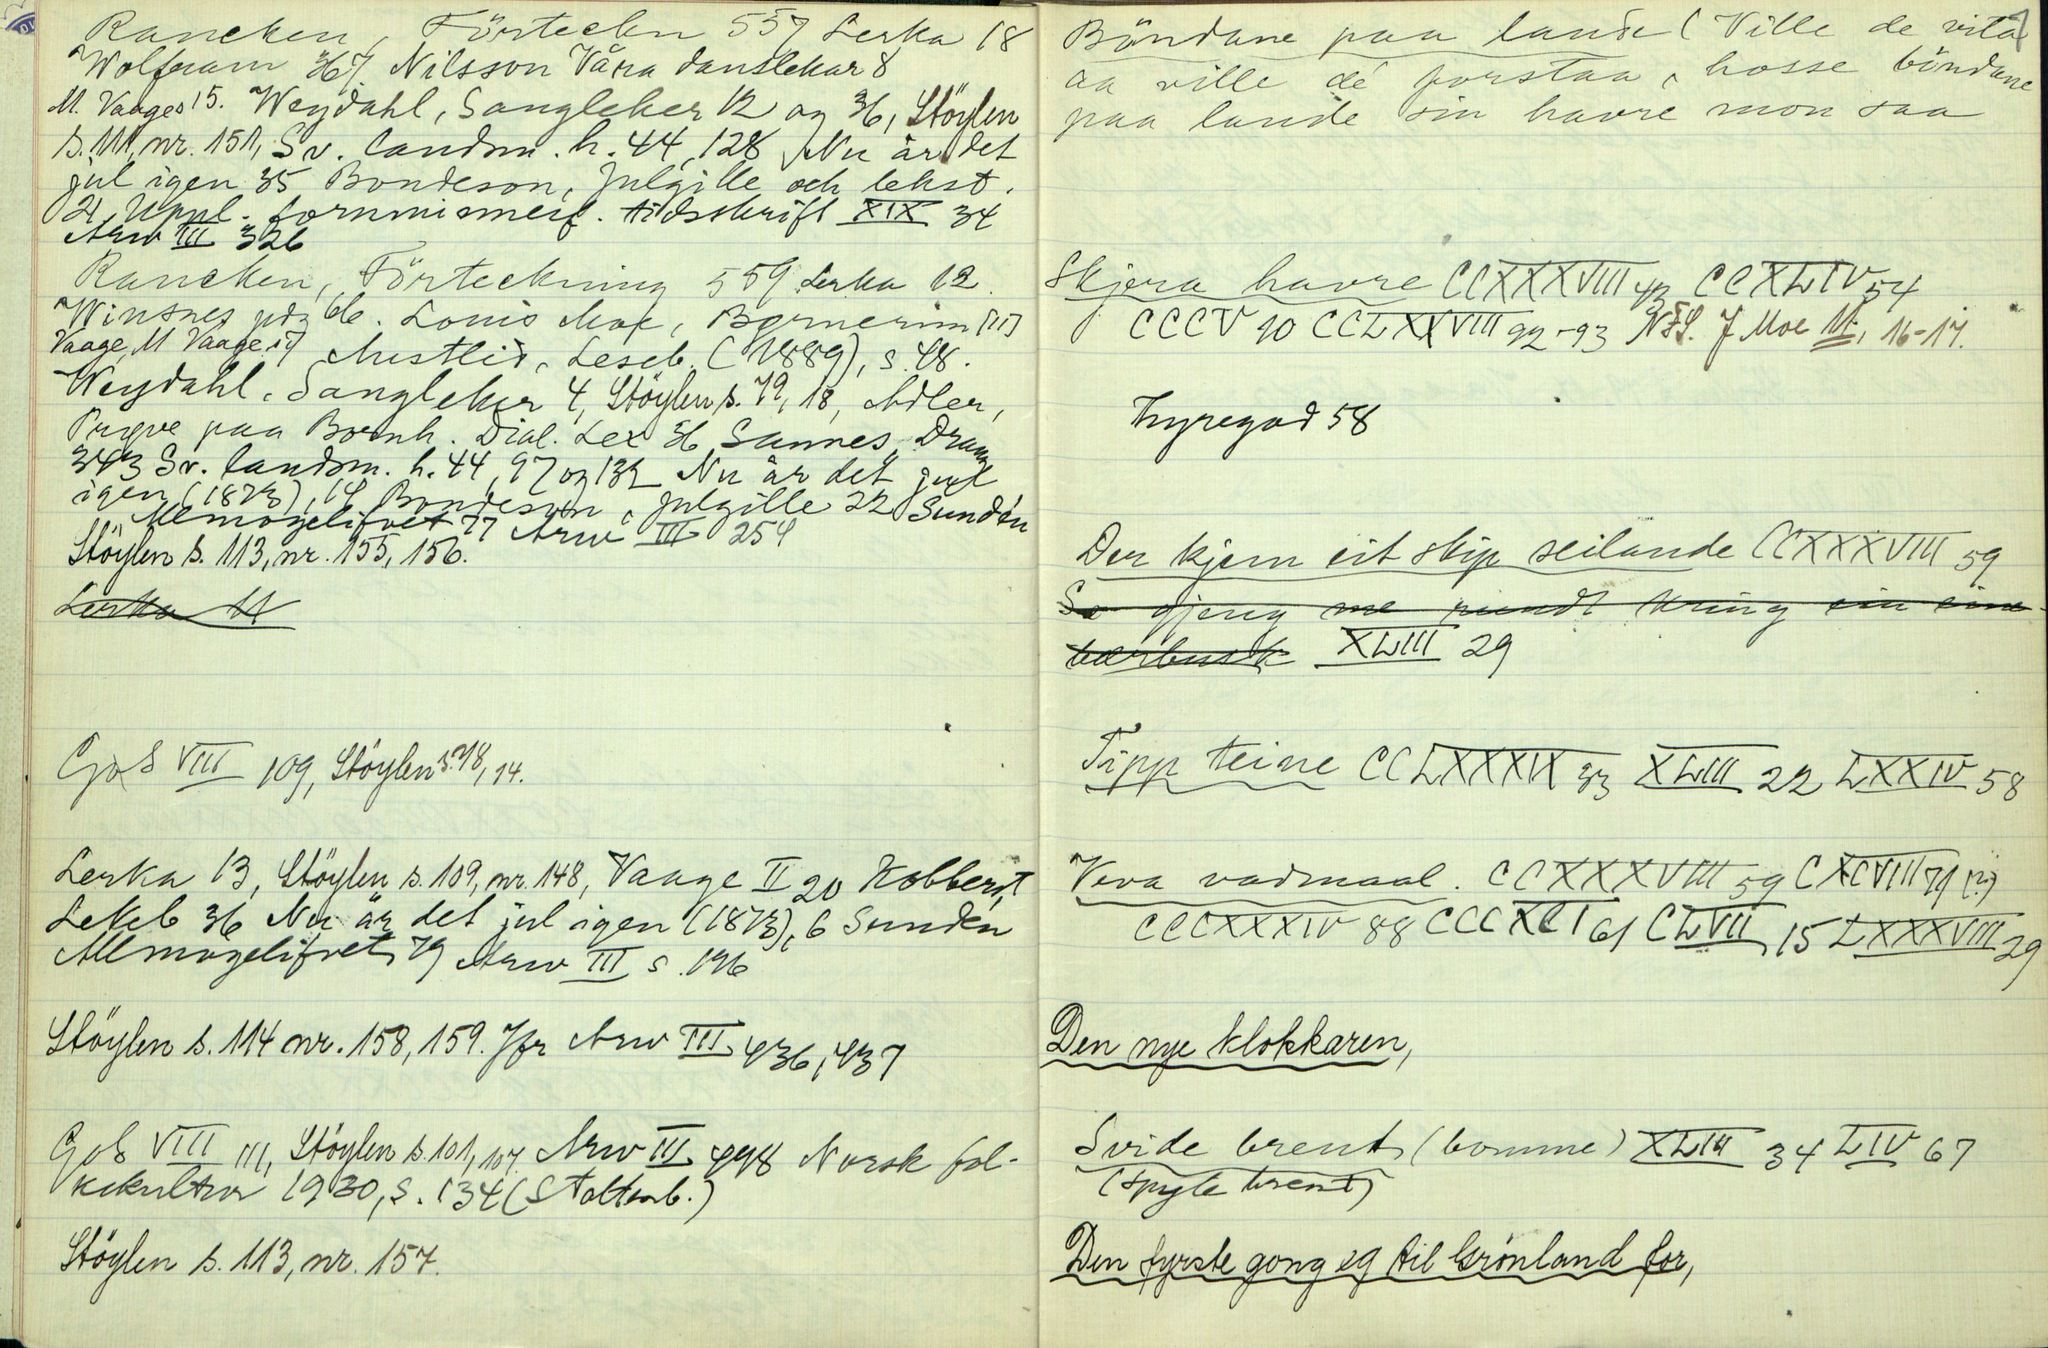 Rancken, Förteckn 557 Lerka 18
Wolfram 367. Nilsson Våra danslekar 8
M. Vaages 15. Weydahl, Sangleker 12 og 36, Stöylen
s. 111, nr. 151, Sv. landsm. h. 44, 128 Nu är det
jul igen 35 Bondeson, Julgille och lekst.
21, Uppl. fornminnesf. tidsskrift XIX 34
Arw III 326
Rancken, Förteckning 559 Lerka 12.
Winsnes 66. Louis Moe, Børnerim [11]
Vaage, M Vaage 17 Austlid, Leseb. (1889), s. 48.
Weydahl, Sangleker 4, Stöylen s. 79, 18, Adler,
Prøve paa Bornh. Dial. Lex 36 Sannes, Draum
343 Sv. landsm. h. 44, 97 og 132 Nu är det jul
igen (1873), 14 Bondeson, Julgille 22 Sundén
Allmogelifvet 77 Arw III 254
Stöylen s. 113, nr. 155, 156.
Lerka 11
GoS VIII 109, Stöylen s. 78, 14.
Lerka 13, Stöylen s. 109, nr. 148, Vaage II 20 Kobberst,
Lekeb 36 Nu är det jul igen (1873), 6 Sundén
Allmogelifvet 79 Arw III s. 196
Stöylen s. 114 nr. 158, 159. Jfr Arw III 436, 437
GoS VIII 111, Stöylen s. 101, 107. Arw III 448 Norsk fol-
kekultur 1930, s. 134 (Stoltenb.)
Stöylen s. 113, nr. 157.
Böndane paa lande (Ville de vita
aa ville de forstaa, hosse böndane
paa lande sin havre mon saa
Skjera havre CCXXXVIII 43 CCXLIV 54
CCCV 10 CCLXXVIII 92-93 NFS. J Moe M. 16-17.
Lyregod 58
Der kjem eit skip seilande CCXXXVIII 59
So gjeng me rundt kring ein eine-
bærbusk XLIII 29
Tipp teine CCLXXXIX 33 XLIII 22 LXXIV 58
Veva vadmaal. CCXXXVIII 59 CXCVIII 71 (?)
CCCXXXIV 88 CCCXCI 61 CLVII 15 LXXXVIII 29
Den nye klokkaren,
Svide brent (bomme) XLIII 34 LIV 67
(spyle brent)
Den fyrste gong eg til Grönland for,